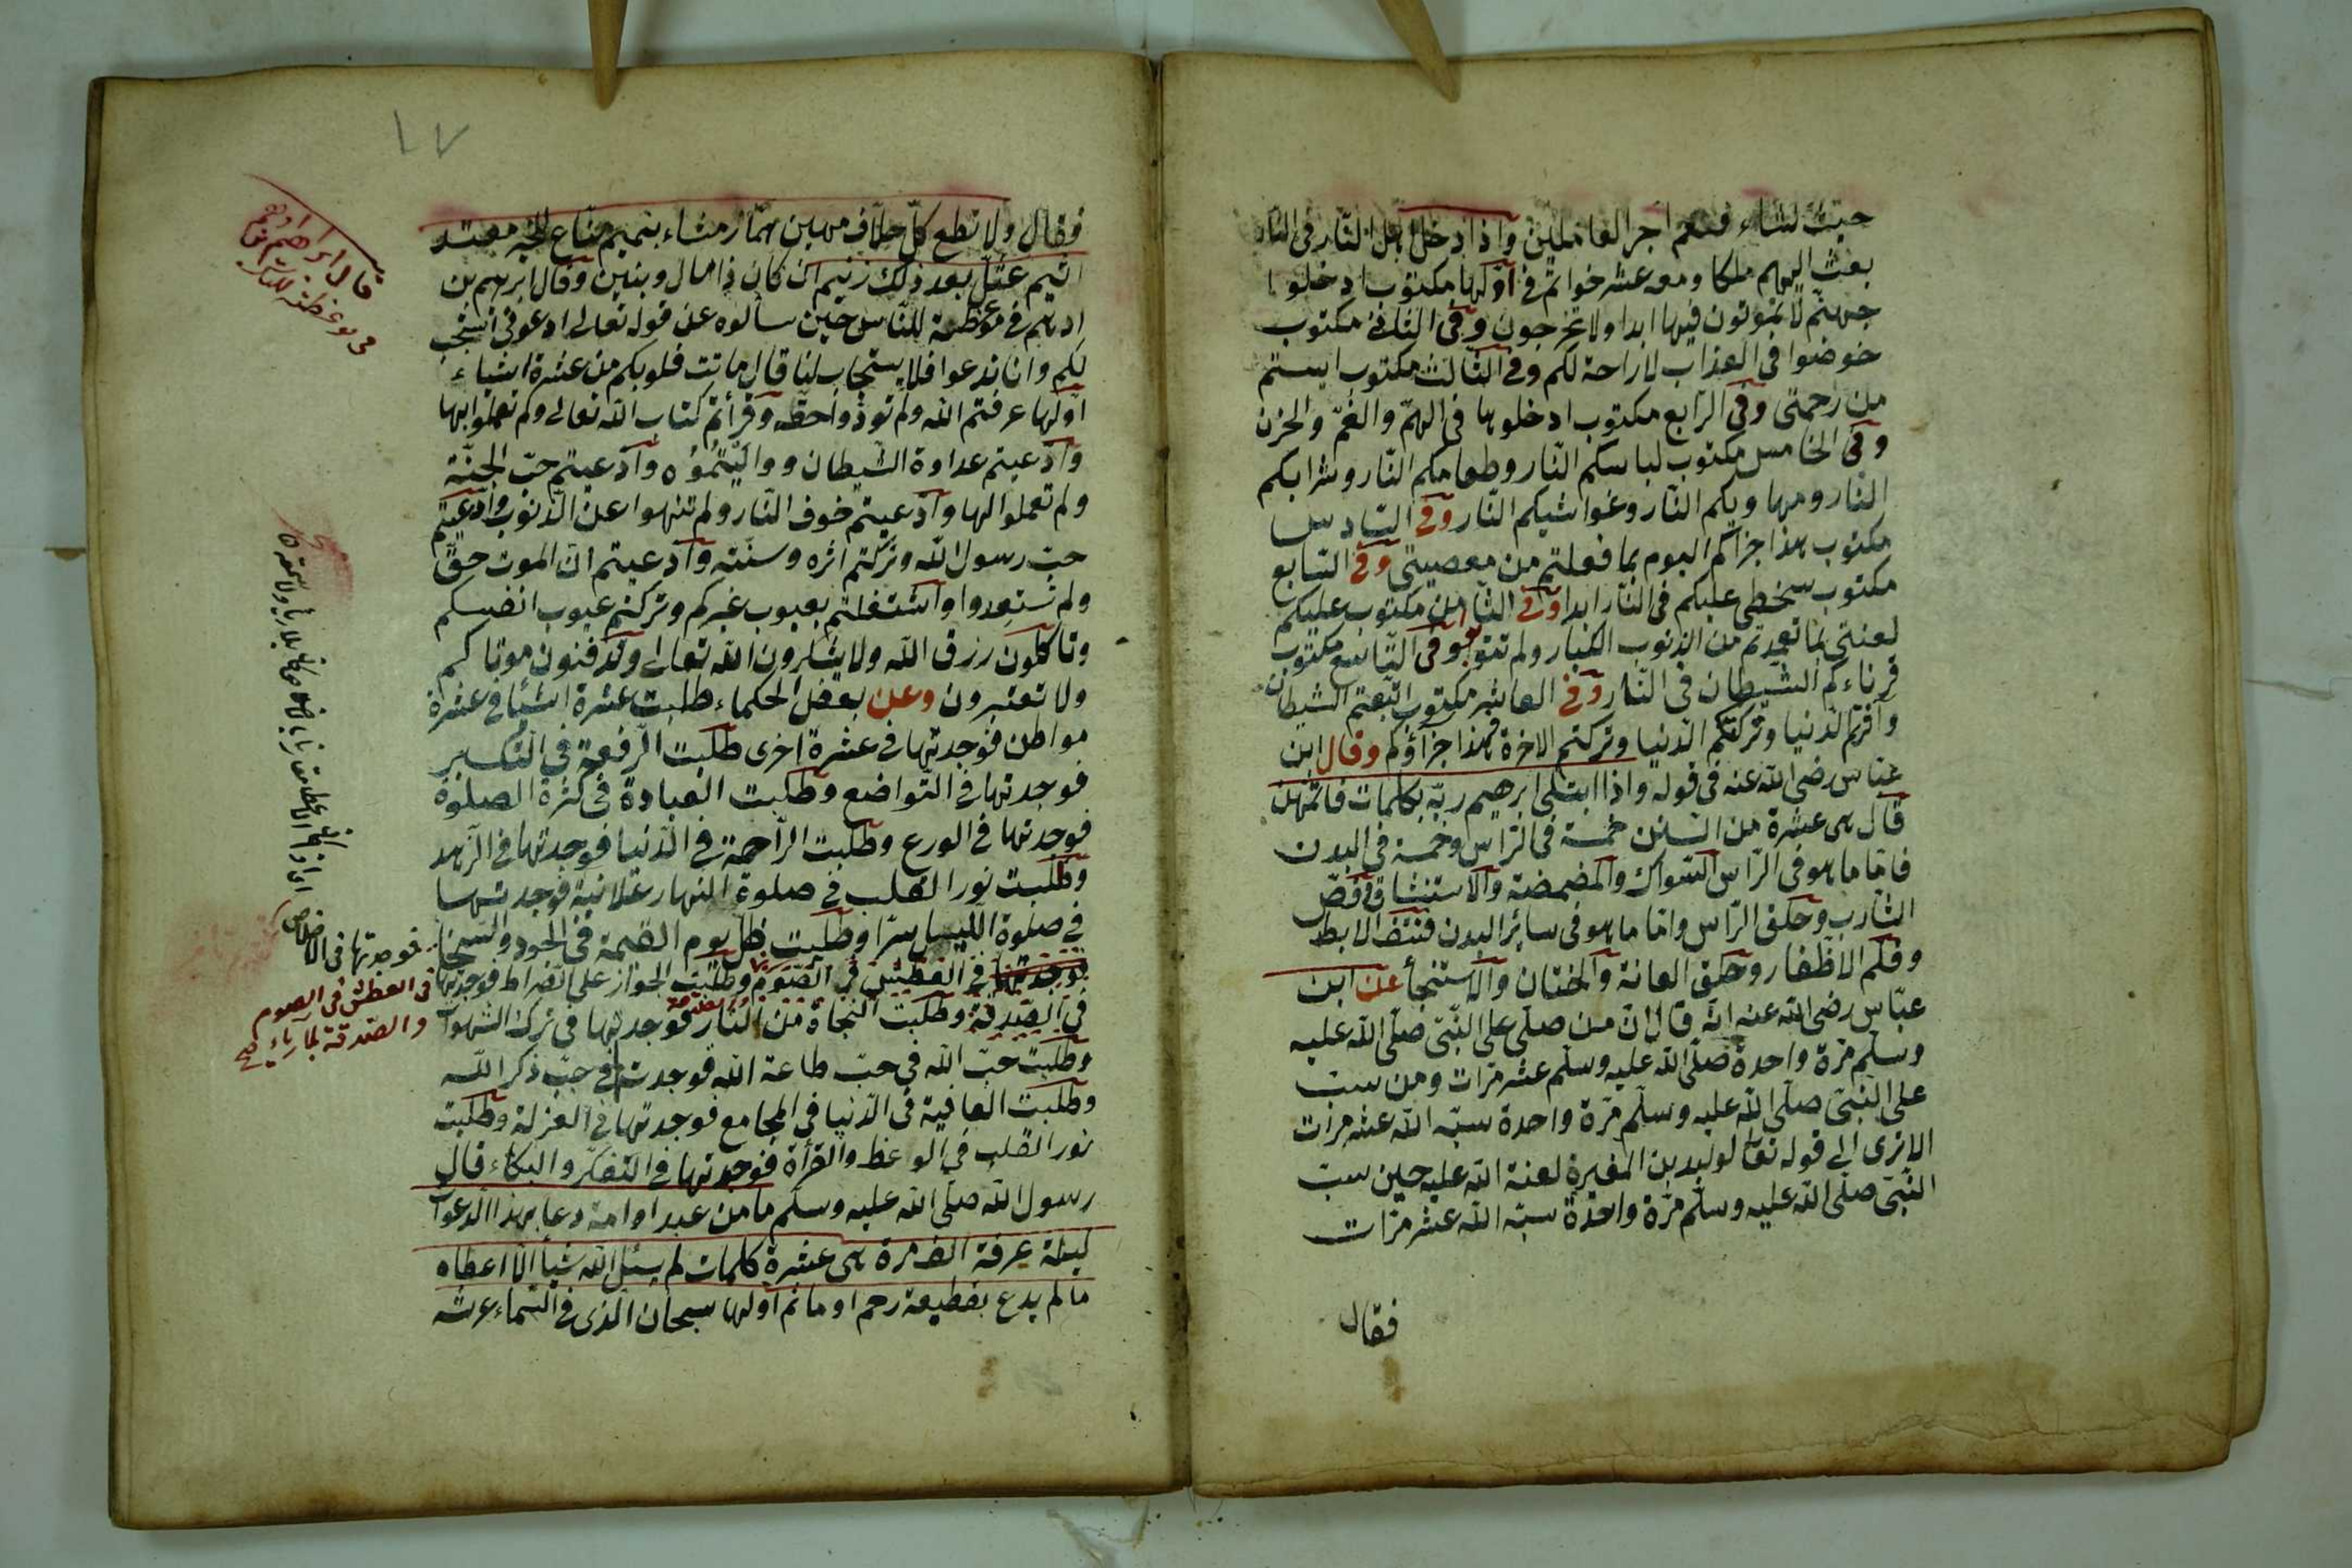 حيث نشاء فنعم اجر العاملين واذا دخل اهل النار فى النار
بعث اليهم ملكا ومعه عشر خواتم فى اولها مكتوب ادخلوا
جهنم لا تموتون فيها ابدا ولا تخرجون وفى الثانى مكتوب
خوضوا فى العذاب لا راحة لكم وفى الثالث مكتوب ايستم
من رحمتى وفى الرابع مكتوب ادخلوها فى الهم والغم والحزن
وفى الخامس مكتوب لباسكم النار وطعامكم النار وشرابكم
النار ومهاويكم النار وغواشيكم النار وفى السادس
مكتوب هذا جزاكم اليوم بما فعلتم من معصيتى وفى السابع
مكتوب سخطى عليكم فى النار ابدا وفى الثامن مكتوب عليكم
لعنتى بما تعمدتم من الذنوب الكبار ولم تتوبوا وفى التاسع مكتوب
قرناءكم الشيطان فى النار وفى العاشر مكتوب اتبعتم الشيطان
وتركتم الاخرة فهذا جزاؤكم وقال ابن
عباس رضى الله عنه فى قوله واذا ابتلى ابرهيم ربه بكلمات فاتمهن
قال هى عشرة من السنن خمسة فى الراس وخمسة فى البدن
فاما ما هو فى الراس السواك والمضمضة والاستنشاق وقص
الشارب وحلق الراس واما ما هو فى سائر البدن فنتف الابط
وقلم الاظفار وحلق العانة والختان والاستنجأ عن ابن
عباس رضى الله عنه انه قال ان من صلى على النبى صلى الله عليه
وسلم مرة واحدة صلى الله عليه وسلم عشر مرات ومن سب
على النبى صلى الله عليه وسلم مرة واحدة سبه الله عشر مرات
الا ترى الى قوله تعا لوليد بن المغيرة لعنة الله عليه حين سب
النبى صلى الله عليه وسلم مرة واحدة سبه الله عشر مرات
فقال
١٧
فقال ولا تطع كل حلاف مهين هماز مشاء بنميم مناع للخير معتد
اثيم عتل بعد ذلك زنيم ان كان ذا مال وبنين وقال ابرهيم بن
ادهم فى موعظة للناس حين سألوه عن قوله تعالى ادعونى استجب
لكم وانا ندعوا فلا يستجاب لنا قال ماتت قلوبكم من عشرة اشياء
اولها عرفتم الله ولم تؤدوا حقه وقرأتم كتاب الله تعالى ولم تعملوا بها
وادعيتم عداوة الشيطان وواليتموه وادعيتم حب الجنة
ولم تعملوا لها وادعيتم خوف النار ولم تنهوا عن الذنوب وادعيتم
حب رسول الله وتركتم اثره وسنته وادعيتم ان الموت حق
ولم تستعدوا واشتغلتم بعيوب غيركم وتركتم عيوب انفسكم
وتاكلون رزق الله ولا يشكرون الله تعالى وتدفنون موتاكم
ولا تعتبرون وعن بعض الحكماء طلبت عشرة اشيئا فى عشرة
مواطن فوجدتها فى عشرة اخرى طلبت الرفعة فى التكبر
فوجدتها فى التواضع وطلبت العبادة فى كثرة الصلوة
فوجدتها فى الورع وطلبت الراحة فى الدنيا فوجدتها فى الزهد
وطلبت نور القلب فى صلوة النهار علانية فوجدتها
فى صلوة الليل سرا وطلبت ظل يوم القيمة فى الجود والسخا
فوجدتها فى العطش فى الصوم وطلبت الجواز على الصراط فوجدتها
فى الصدقة وطلبت النجاة من النار فوجدتها فى ترك الشهوات
وطلبت حب الله فى حب طاعة الله فوجدتها فى حب ذكر الله
وطلبت العافية فى الدنيا فى المجامع فوجدتها فى العزلة وطلبت
نور القلب فى الواعظ والقرأة فوجدتها فى التفكر والبكاء قال
رسول الله صلى الله عليه وسلم ما من عبد او امة دعا بهذا الدعوات
ليلة عرفة الف مرة هى عشرة كلمات لم يسئل الله شيأ الا اعطاه
ما لم يدع بقطيعة رحم او مأثم اولها سبحان الذى فى السماء عرشه
قال ابراهيم ادهم
فى موعظة للناس
فوجدتها فى الاخلاص
فى العطش فى الصوم
والصدقة بلا رياء صح